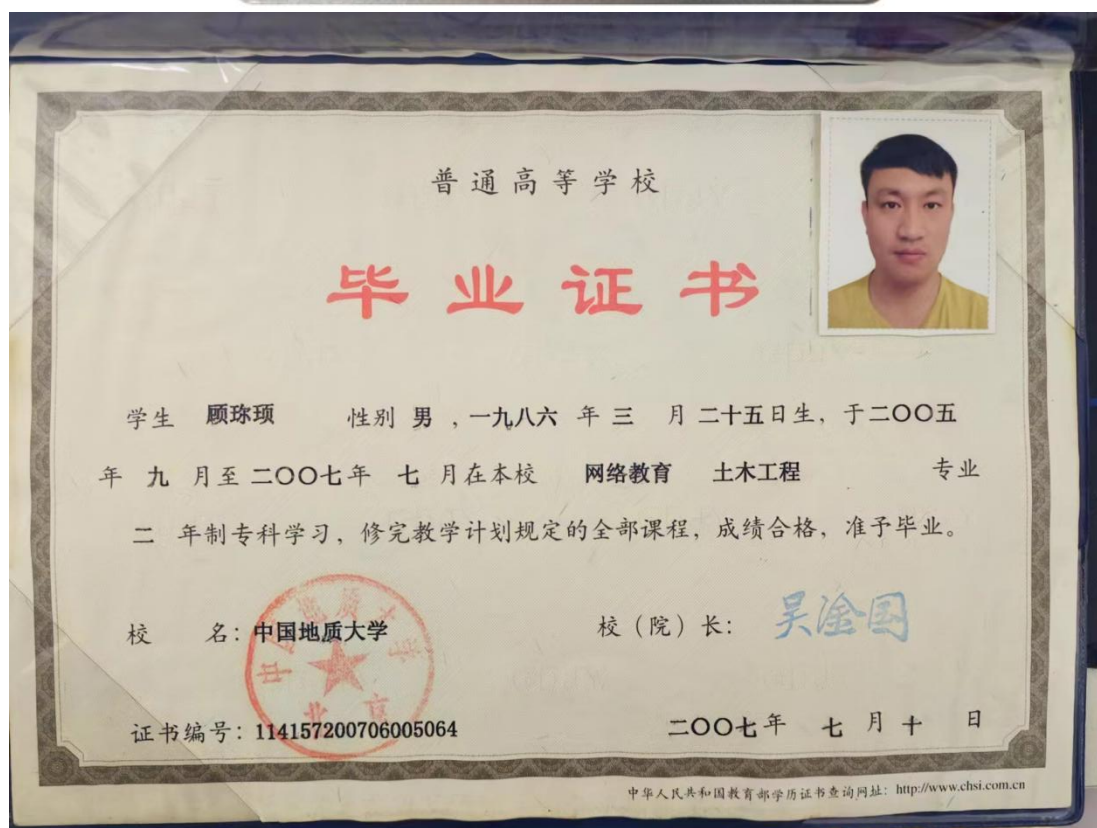 普通高等学校
毕业证书
学生 顾珎顼 性别 男 ，一九八六 年 三 月 二十五日生，于二〇〇五
年 九 月至 二〇〇七年 七 月在本校 网络教育 土木工程 专业
二 年制专科学习，修完教学计划规定的全部课程，成绩合格，准予毕业。
校 名：中国地质大学 校（院）长：吴淦国
中国地质大学
北京
证书编号：114157200706005064 二〇〇七年 七 月 十 日
中华人民共和国教育部学历证书查询网址：http://www.chsi.com.cn